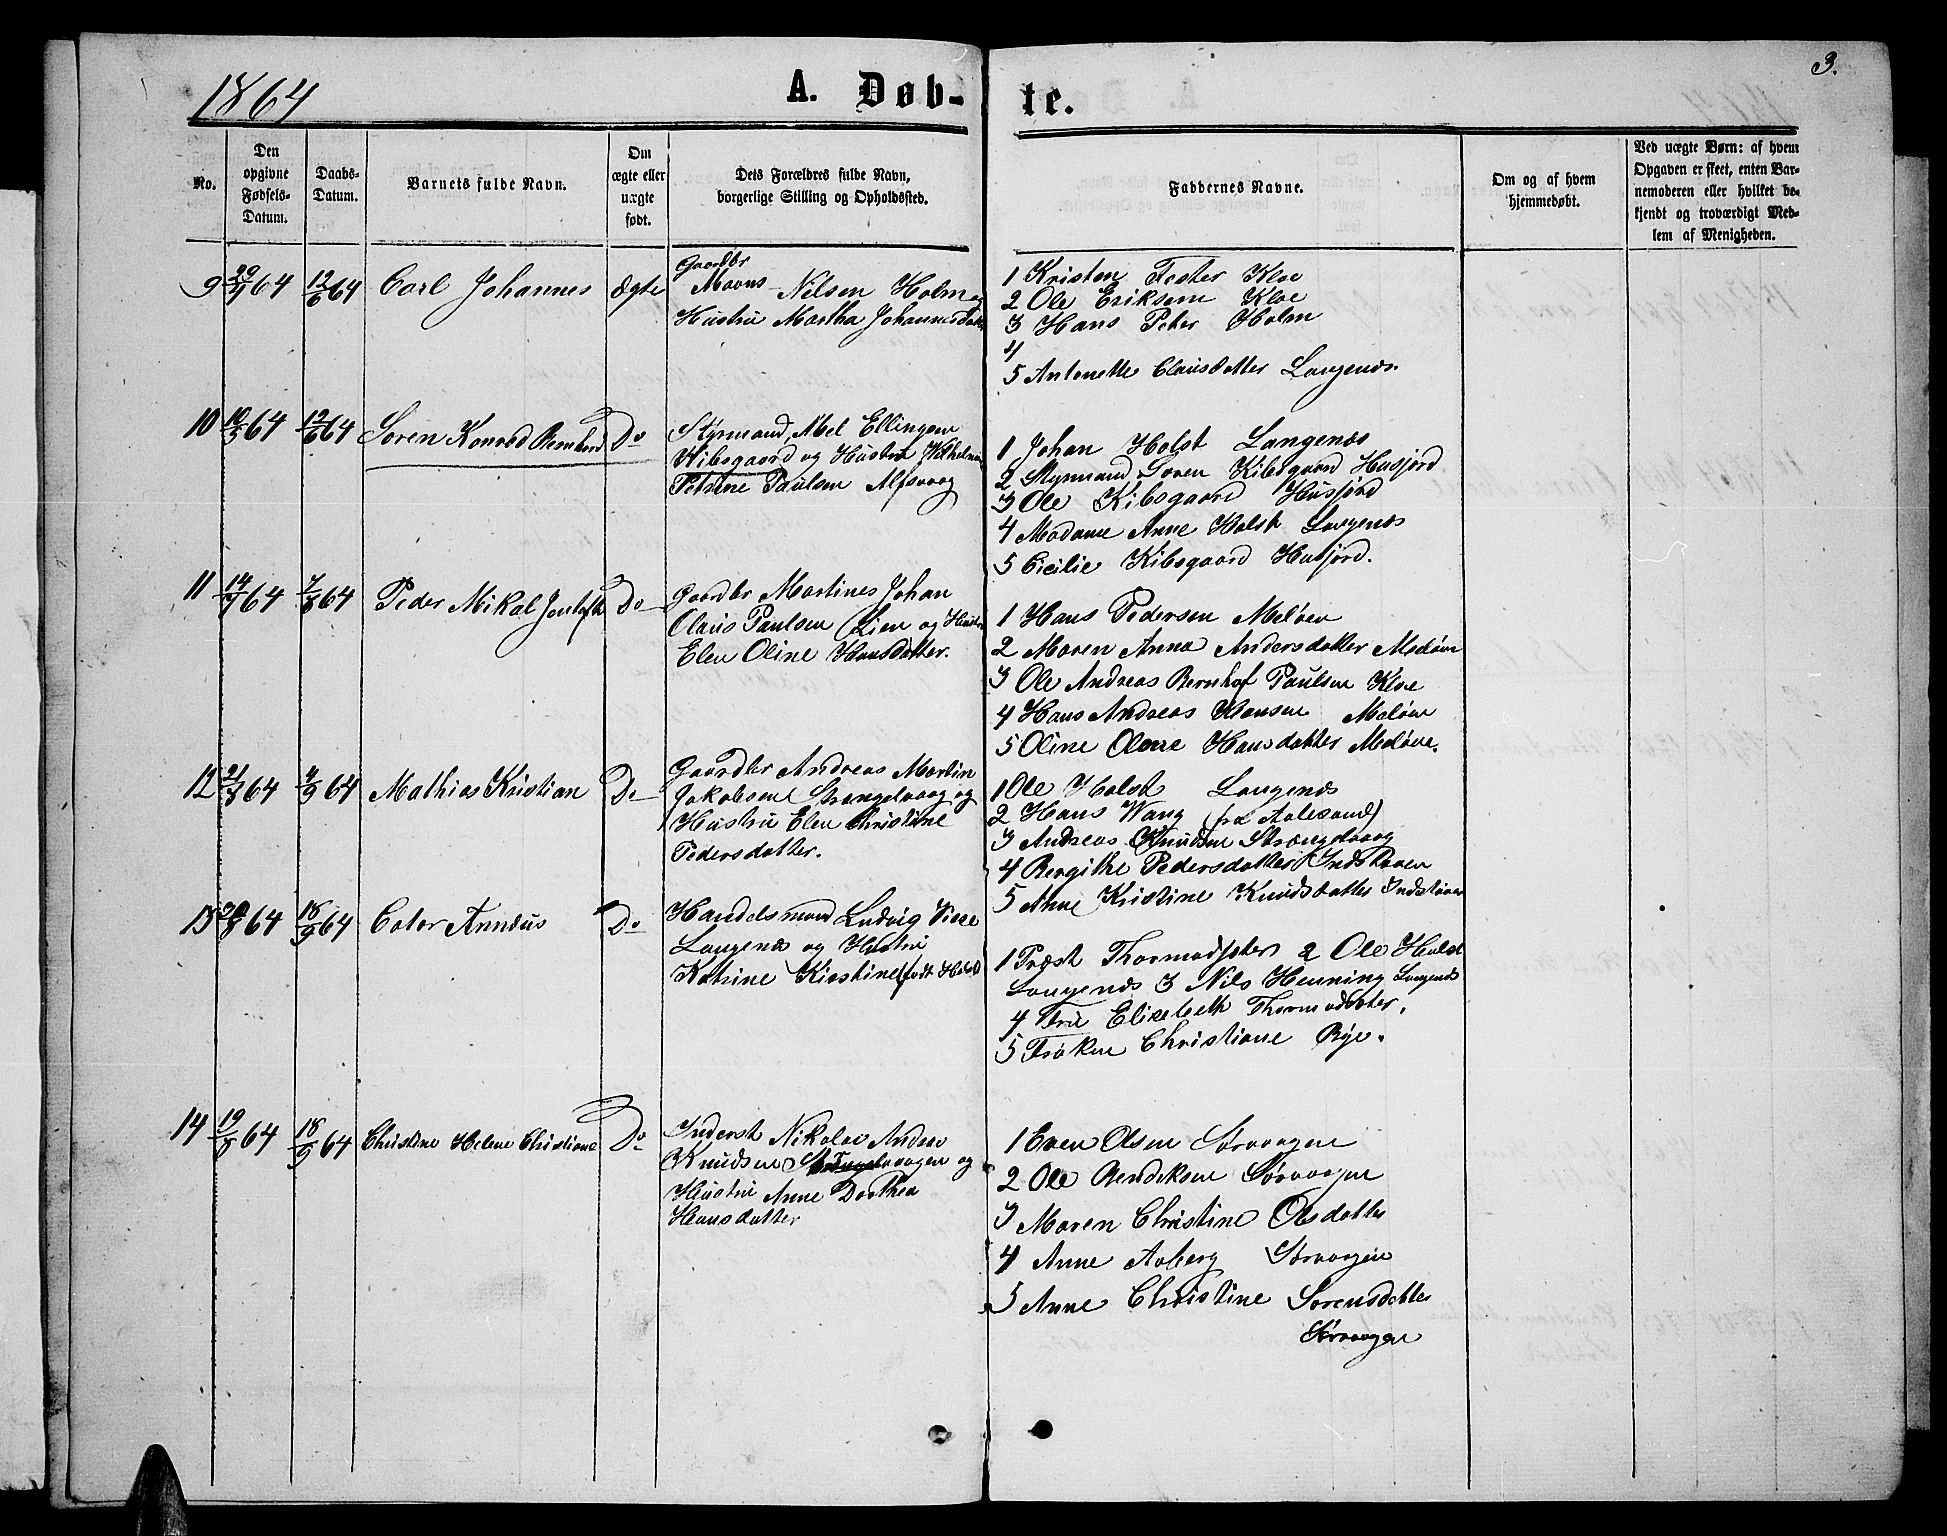 1864
A. Døb-
te.
3.
No.
Den opgivne Fødsels-Datum.
Daabs-Datum.
Barnets fulde Navn.
Om ægte eller uægte født.
Dets Forældres fulde Navn, borgerlige Stilling og Opholdssted.
Faddernes Navne.
Om og af hvem hjemmedøbt.
Ved uægte Børn: af hvem Opgaven er skeet, enten Barnemoderen eller hvilket bekjendt og troværdigt Medlem af Menigheden.
9 64 12/6 64 Carl Johannes ægte
Gaardbr
Nilsen Holm og
Hustru Martha Johannesdatter
1 Kristen Fester Kloe
2 Ole Eriksen Kloe
3 Hans Peter Holm
4
5 Antonette Clausdatter Langenæs.
10 64 12/6 64 Soren Konrad Bernhard Do
Styrmand, Mel Ellingsen
Kibsgaard og Hustru Wilhelmine
Petrine Paulsen Alfsvaag
1 Johan Holst Langenæs
2 Styrmand Soren Kibsgaard Husjord
3 Ole Kibsgaard Husjord
4 Madame Anne Holst Langenæs
5 Cicilie Kibsgaard Husjord.
11 64 7/8 64 Peder Mikal Do
Gaardbr Martines Johan
Claus Paulsen Lien og Hustru
Elen Oline Hansdatter.
1 Hans Pedersen Meløen
2 Maren Anna Andersdatter Meløen
3 Ole Andreas Bernhof Paulsen Kloe
4 Hans Andreas Hansen Meløen
5 Oline Olene Hansdatter Meløen.
12 64 4/9 64 Mathias Kristian Do
Gaardbr Andreas Martin
Jakobsen Strengelvaag og
Hustru Elen Christine
Pedersdatter.
1 Ole Holst Langenæs
2 Hans Wang (fra Aalesund)
3 Andreas Knudsen Strængelvaag
4 Bergithe Pedersdatter Indstøven
5 Anne Kristine Knudsdatter Indstøven
13 64 18/9 64 Do
Handelsmand Ludvig
Langenæs og Hustru
Katrine Kirstine født Holst
1 Præst Thormodsæter 2 Ole Holst
Langenæs 3 Nils Henning Langenæs
4 Fru Elisebeth Thormodsæter.
5 Frøken Christiane Rye.
14 19/8 64 18/9 64 Christine Helene Christiane Do
Inderst Nikolai Anders
Knudsen og
Hustru Anne Dorthea
Hansdatter
1 Even Olsen Sørvaagen
2 Ole Bendiksen Sørvaagen
3 Maren Christine Olsdatter
4 Anne Aaberg Sørvaagen
5 Anne Christine Sorensdatter
Sørvaagen